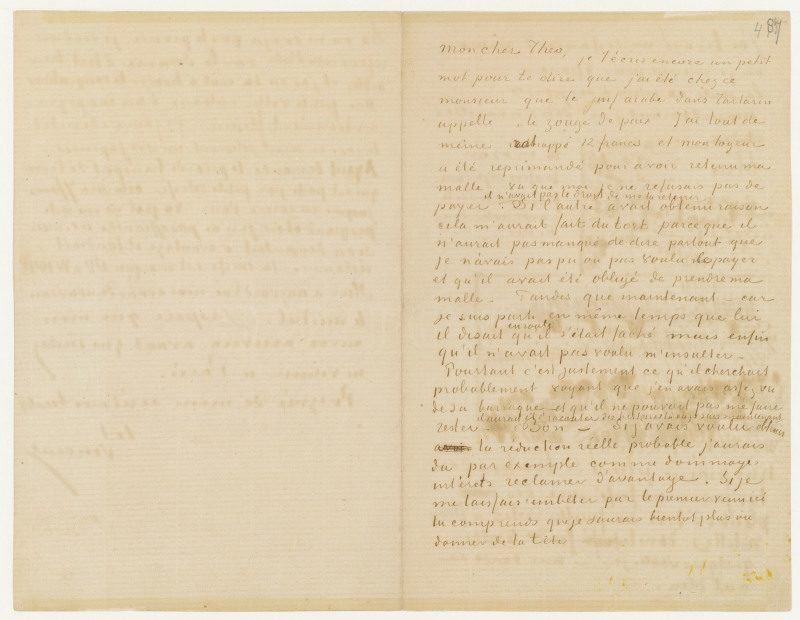 487
mon cher Theo,
je t'écris encore un petit
mot pour te dire que j'ai été chez ce
monsieur que le juif arabe dans Tartarin
appelle "le zouge de paix". J'ai tout de
même rattrappé 12 francs et mon logeur
a été reprimandé pour avoir retenu ma
malle vu que moi je ne refusais pas de
il n'avait pas le droit de me la retenir
payer. Si l'autre avait obtenu raison
cela m'aurait fait du tort parce que il
n'aurait pas manqué de dire partout que
je n'avais pas pu ou pas voulu le payer
et qu'il avait été obligé de prendre ma
malle. Tandis que maintenant - car
je suis parti en même temps que lui
en route
il disait qu'il s'était faché mais enfin
qu'il n'avait pas voulu m'insulter -
Pourtant c'est justement ce qu'il cherchait
probablement voyant que j'en avais assez vu
de sa barraque et qu'il ne pouvait pas me faire
rester - Bon - Si j'avais voulu obtenir
la réduction réelle probable j'aurais
du par exemple comme dommages
intérets reclamer d'avantage. Si je
me laissais embêter par le premier venu ici
tu comprends que je saurais bientot plus où
donner de la tête